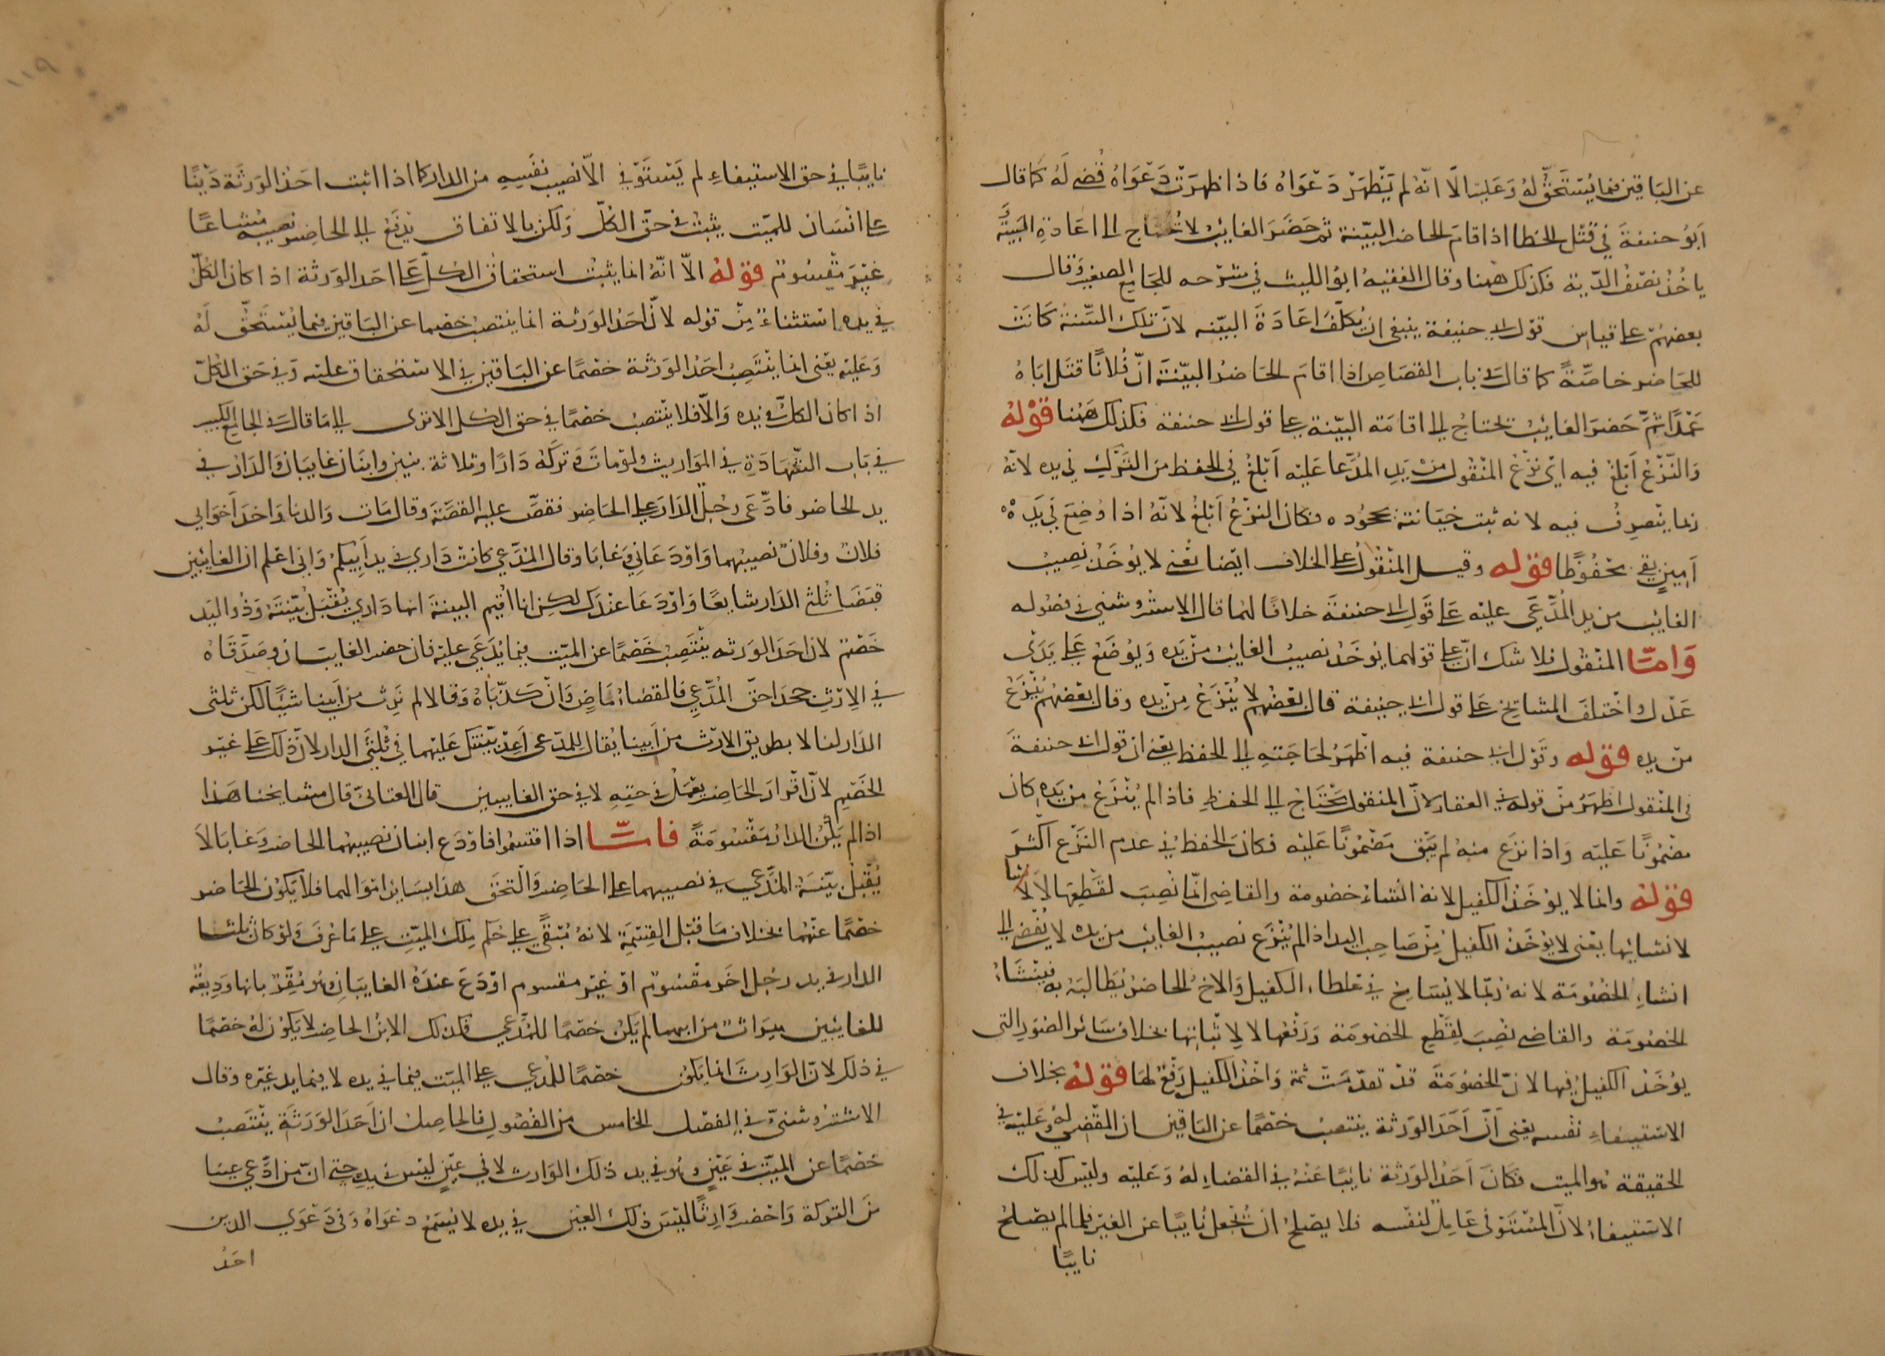 عن الباقين فيما يستحق له وعليه الا انه لم يظهر دعواه فاذا ظهرت دعواه قضى له كما قال
ابو حنيفة في قتل الخطا اذا اقام الحاضر البينة ثم حضر الغائب لا تحتاج الى اعادة البينة
ياخذ نصف الدية فكذلك ههنا وقال الفقيه ابو الليث في شرحه للجامع الصغير وقال
بعضهم على قياس قول ابي حنيفة ينبغي ان يكلف اعادة البينه لان تلك البينة كانت
للحاضر خاصة كما قال في باب القصاص اذا اقام الحاضر البينة ان فلانا قتل اباه
عمدا ثم حضر الغائب يحتاج الى اقامة البينة على قول ابي حنيفة فكذلك ههنا قوله
والنزع ابلغ فيه اي نزع المنقول من يد المدعا عليه ابلغ في الحفظ من الترك في يده لانه
ربما يتصرف فيه لانه ثبت خيانته بجحوده فكان النزع ابلغ لانه اذا وضع في يد
امين يبقى محفوظا قوله وقيل المنقول على الخلاف ايضا يعني لا يؤخذ نصيب
الغائب من يد المدعى عليه على قول ابي حنيفة خلافا لهما قال الاستروشني في فصوله
واما المنقول فلا شك ان على قولهما يؤخذ نصيب الغائب من يده ويوضع على يدي
عدل واختلف المشايخ على قول ابي حنيفة قال بعضهم لا ينزع من يده وقال بعضهم ينزع
من يده قوله وقول ابي حنيفة فيه اظهر لحاجته الى الحفظ يعني ان قول ابي حنيفة
في المنقول اظهر من قوله في العقار لان المنقول يحتاج الى الحفظ فاذا لم ينزع من يده كان
مضمونا عليه واذا نزع منه لم يبق مضمونا عليه فكان الحفظ في عدم النزع اكثر
قوله وانما لا يؤخذ الكفيل لانه انشاء خصومة والقاضي انما نصب لقطعها لا
لانشائها يعني لا يؤخذ الكفيل من صاحب اليد اذا لم ينزع نصيب الغايب من يده لا يفضي الى
انشاء الخصومة لانه ربما لا يسامح في اعطاء الكفيل والاخ الحاضر يطالبه به فينشاء
الخصومة والقاضي نصب لقطع الخصومة ورفعها لا لاثباتها بخلاف سائر الصور التي
يؤخذ الكفيل فيها لان الخصومة قد تقدمت ثمة واخذ الكفيل رفع لها قوله بخلاف
الاستيفاء نفسه يعني ان احد الورثة ينتصب خصما عن الباقين ان المقضي له وعليه في
الحقيقة هو الميت فكان احد الورثة نايبا عنه في القضاء له وعليه وليس كذلك
الاستيفاء لان المستوفي عامل لنفسه فلا يصلح ان يجعل نايبا عن الغير فلما لم يصلح
نايبا
نايبا في حق الاستيفاء لم يستوفي الا نصيب نفسه من الدار كما اذا اثبت احد الورثة دينا
على انسان للميت يثبت في حق الكل ولكن بالاتفاق يدفع الى الحاضر نصيبه مشاعا
غير مقسوم قوله الا انه انما يثبت استحقاق الكل على احد الورثة اذا كان الكل
في يده استثناء من قوله لان احد الورثة انما ينتصب خصما عن الباقين فيما يستحق له
وعليه يعني انما ينتصب احد الورثة خصما عن الباقين في الاستحقاق عليه وفي حق الكل
اذا كان الكل في يده والا فلا ينتصب خصما في حق الكل الا ترى الى ما قال في الجامع الكبير
في باب الشهادة في المواريث ولو مات وتركه دارا وثلاثة بنين وابنان غايبان والدار في
يد الحاضر فادعى رجل الدار على الحاضر فقص عليه القصة وقال مات والدنا واخذ اخواي
فلان وفلان نصيبهما واودعاني وغابا وقال المدعي كانت داري في يد ابيكم واني اعلم ان الغائبين
قبضا ثلثي الدار شايعا واودعا عندك لكن انا اقيم البينة انها داري يقبل بينته وذو اليد
خصم لان احد الورثه ينتصب خصما عن الميت فيما يدعى عليه فان حضر الغايبان وصدقاه
في الارث وجحدا حق المدعي فالقضاء ماض وان كذباه وقالا لم نرث من ابينا شيئا لكن ثلثي
الدار لنا لا بطريق الارث من ابينا يقال للمدعي اعد بينتك عليهما في ثلثي الدار لان ذلك على غير
الخصم لان اقرار الحاضر يعمل في حقه لا في حق الغايبين قال العتابي قال مشايخنا هذا
اذا لم يكن الدار مقسومة فاما اذا اقتسموا فاودع ابنان نصيبهما الحاضر وغابا لا
يقبل بينة المدعي في نصيبهما على الحاضر والتحق هذا بسائر اموالهما فلا يكون الحاضر
خصما عنهما بخلاف ما قبل القسمة لانه مبقى على حكم ملك الميت على ما عرف ولو كان ثلثا
الدار في يد رجل اخر مقسوم او غير مقسوم اودع عنده الغايبان هو مقر بانها وديعة
للغائبين ميراث من ابيهما لم يكن خصما للمدعي فكذلك الابن الحاضر لا يكون له خصما
في ذلك لان الوارث انما يكون خصما للمدعي على الميت فيما في يده لا فيما يد غيره وقال
الاستروشني في الفصل الخامس من الفصول فالحاصل ان احد الورثة ينتصب
خصما عن الميت في عين هو في يد ذلك الوارث لا في عين ليس في يده حتى ان من ادعى عينا
من التركة واحضر وارثا ليس ذلك العين في يده لا يسمع دعواه وفي دعوى الدين
احد
١١٩